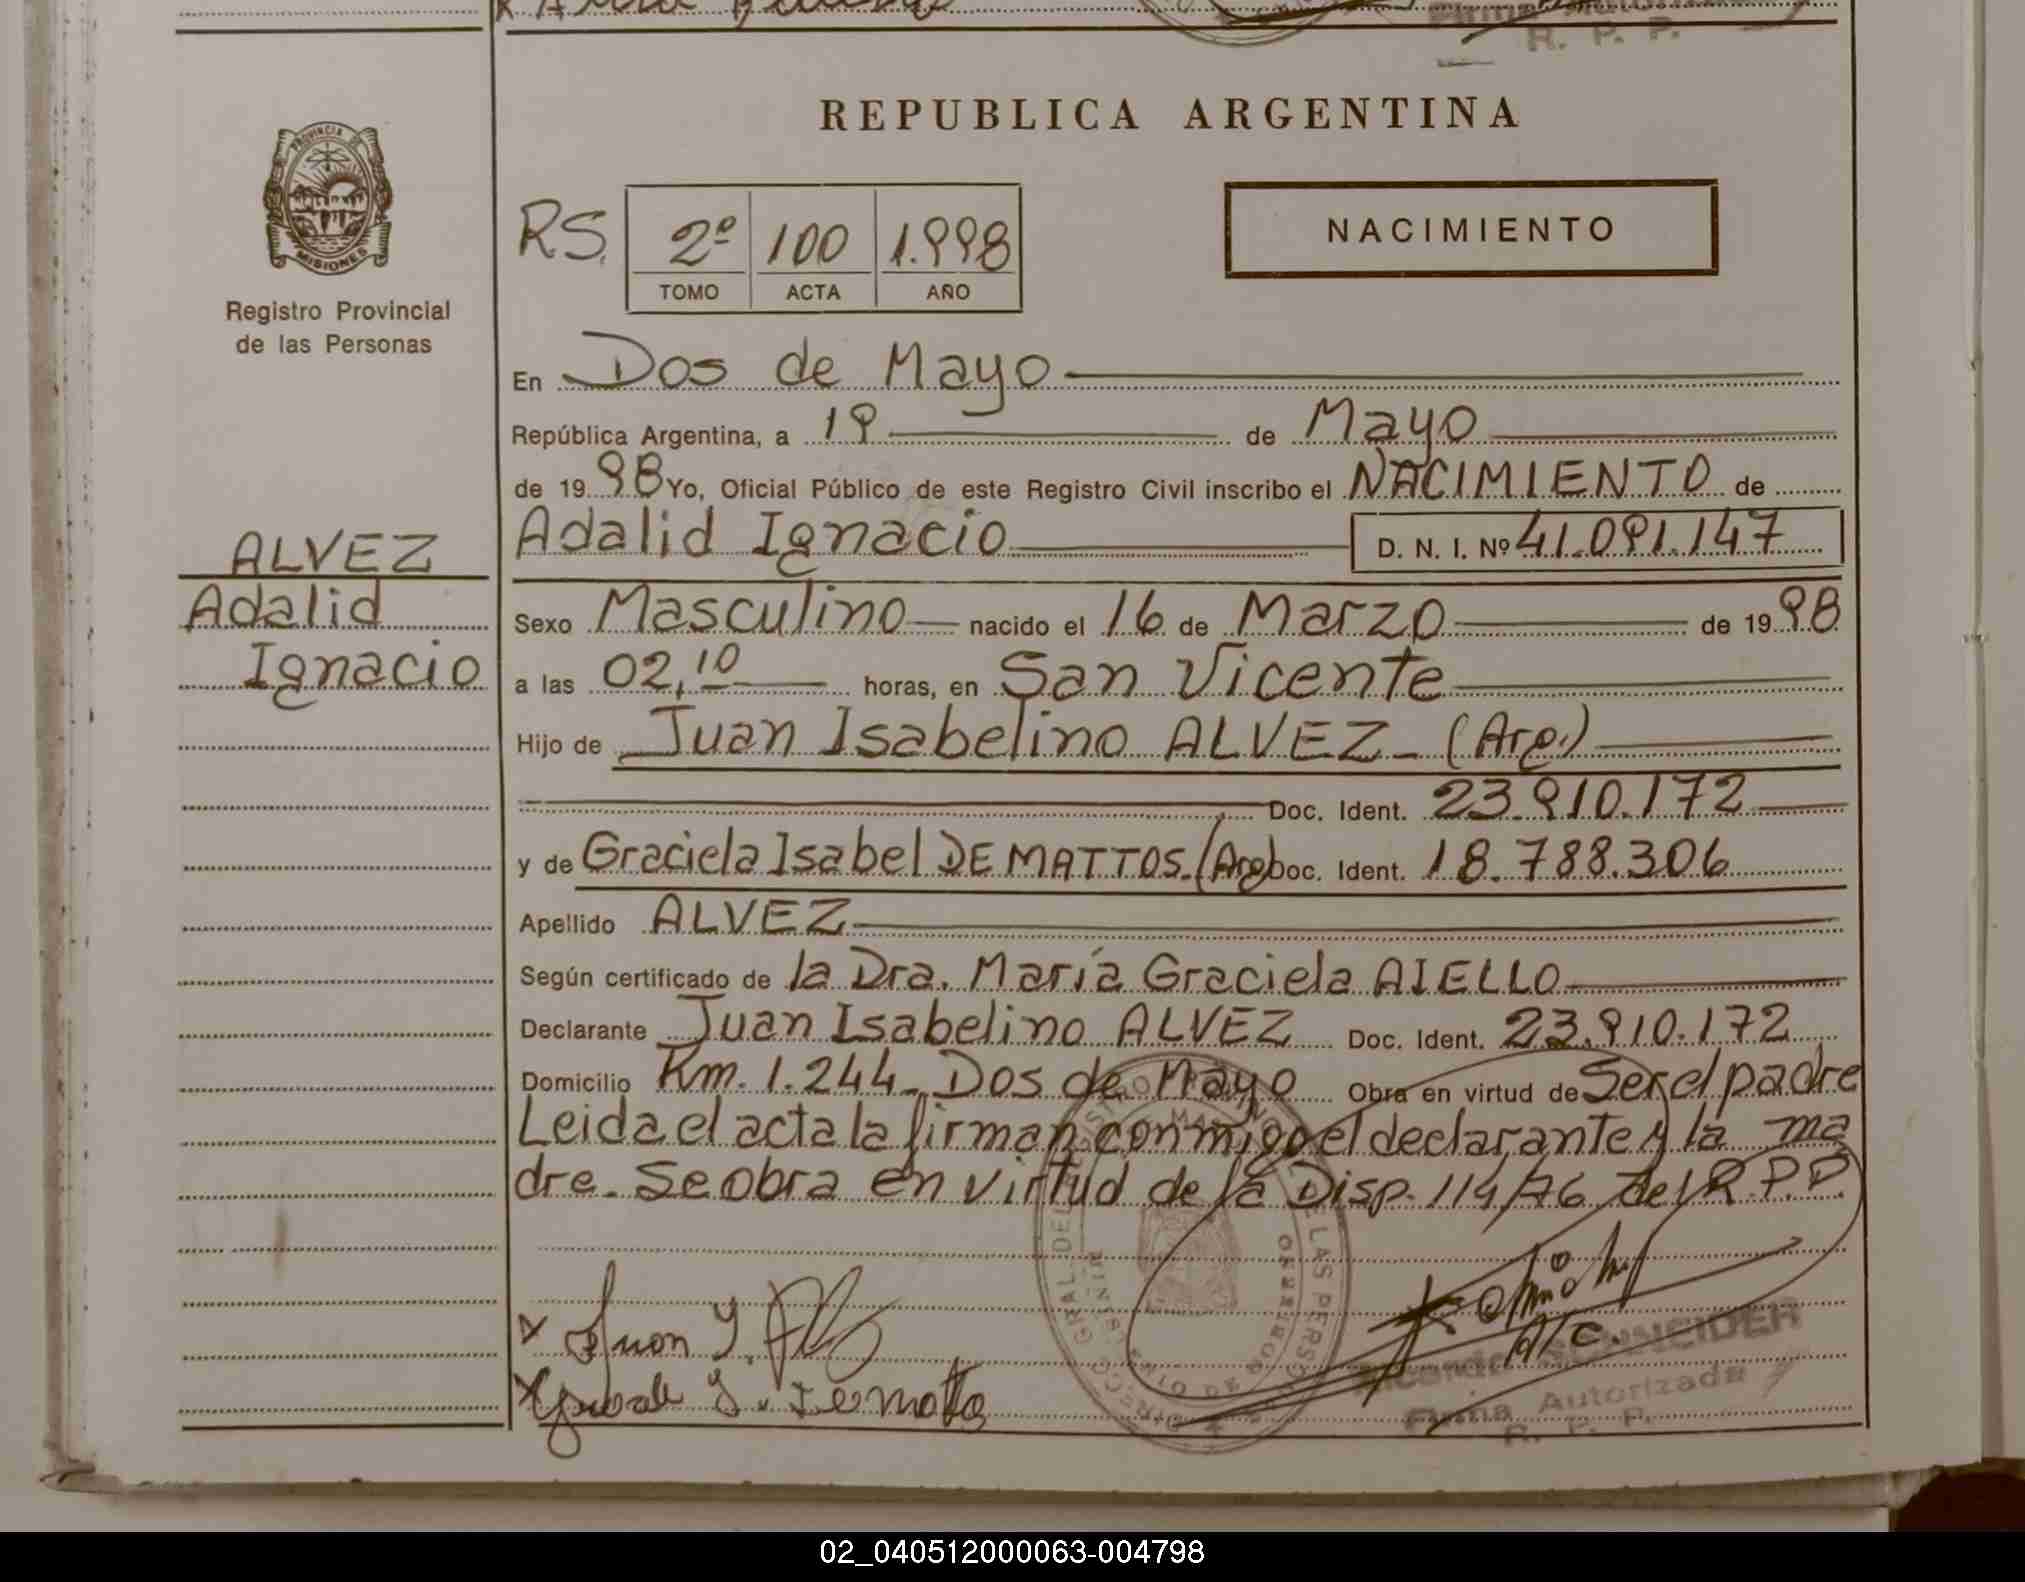 R. P. P.
REPUBLICA ARGENTINA
PROVINCIA DE
MISIONES
Registro Provincial
de las Personas
RS. 2º 100 1.998
TOMO ACTA AÑO
NACIMIENTO
En Dos de Mayo
República Argentina, a 19 de Mayo
de 1998 Yo, Oficial Público de este Registro Civil inscribo el NACIMIENTO de
ALVEZ
Adalid
Ignacio
Adalid Ignacio D. N. I. Nº 41.091.147
Sexo Masculino nacido el 16 de Marzo de 1998
a las 02,10 horas, en San Vicente
Hijo de Juan Isabelino ALVEZ - (Arg.)
Doc. Ident. 23.910.172
y de Graciela Isabel DE MATTOS. (Arg) Doc. Ident. 18.788.306
Apellido ALVEZ
Según certificado de la Dra. María Graciela AIELLO
Declarante Juan Isabelino ALVEZ Doc. Ident. 23.910.172
Domicilio Km. 1.244 - Dos de Mayo Obra en virtud de Ser el padre
Leida el acta la firman conmigo el declarante y la ma
dre. Se obra en virtud de la Disp. 114/76 del R.P.P.
Juan I.
A/C.
SCHNEIDER
Firma Autorizada
R. P. P.
02_040512000063-004798